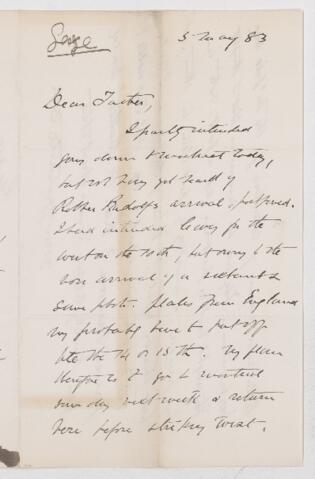 George
5 May 83
Dear Father,
I partly intended
going down to Montreal today,
but not having yet heard of
Brother Rudolf's arrival, postponed.
I had intended leaving for the
west on the 10th, but owing to the
non arrival of a sextant &
some photo. plates from England
my probably have to put off
till the 14 or 15th. My plan
therefore is to go to Montreal
some day next week & return
here before striking West.